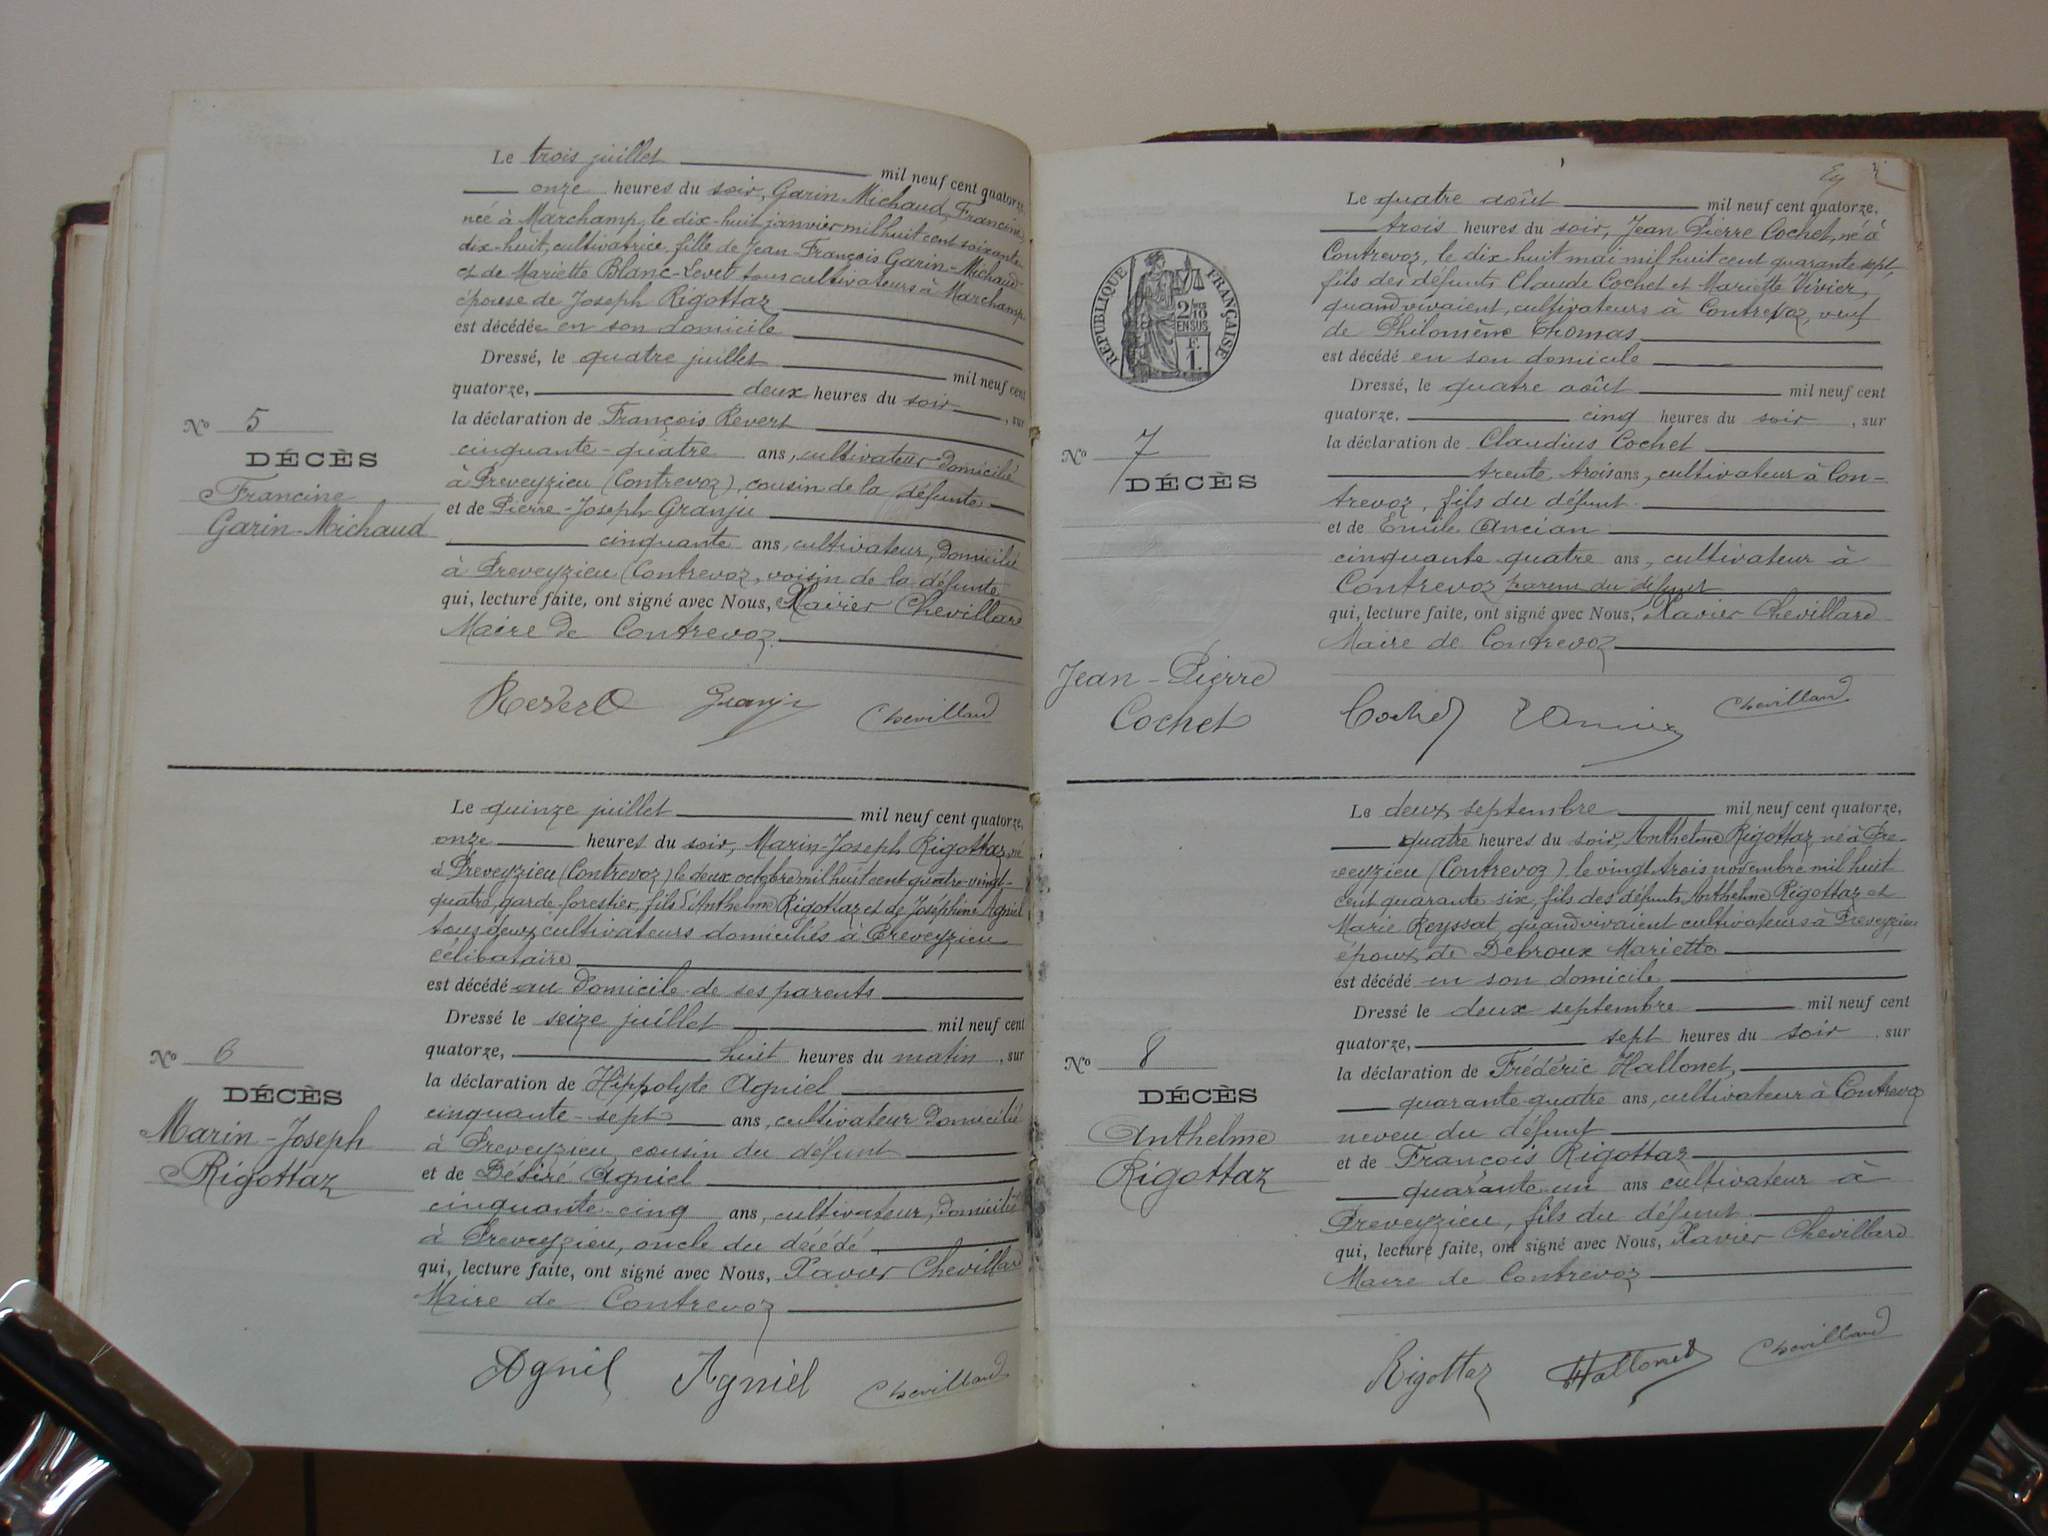 Le trois juillet mil neuf cent quatorze,
onze heures du soir, Garin-Michaud, Francine,
née à Marchamp, le dix-huit janvier mil huit cent soixante
dix-huit, cultivatrice, fille de Jean-François Garin-Michaud
et de Mariette Blanc-Levet tous cultivateurs à Marchamp
épouse de Joseph Rigottaz
est décédée en son domicile
Dressé, le quatre juillet mil neuf cent
quatorze, deux heures du soir, sur
la déclaration de François Revert
cinquante-quatre ans, cultivateur domicilié
à Preveyzieu (Contrevoz), cousin de la défunte
et de Pierre-Joseph Granju
cinquante ans, cultivateur, domicilié
à Preveyzieu (Contrevoz, voisin de la défunte
qui, lecture faite, ont signé avec Nous, Xavier Chevillard
Maire de Contrevoz.
No 5
DÉCÈS
Francine
Garin-Michaud
Revert Granju Chevillard
Le quinze juillet mil neuf cent quatorze,
onze heures du soir, Marin-Joseph Rigottaz, né
à Preveyzieu (Contrevoz) le deux octobre mil huit cent quatre-vingt-
quatre, garde-forestier, fils d'Anthelme Rigottaz et de Joséphine Agniel
tous deux cultivateurs domiciliés à Preveyzieu
célibataire
est décédé au domicile de ses parents
Dressé le seize juillet mil neuf cent
quatorze, huit heures du matin, sur
la déclaration de Hippolyte Agniel
cinquante-sept ans, cultivateur domicilié
à Preveyzieu, cousin du défunt
et de Désiré Agniel
cinquante-cinq ans, cultivateur, domicilié
à Preveyzieu, oncle du décédé
qui, lecture faite, ont signé avec Nous, Xavier Chevillard
Maire de Contrevoz
No 6
DÉCÈS
Marin-Joseph
Rigottaz
Agnil Agniel Chevillard
RÉPUBLIQUE FRANÇAISE
2/10
EN SUS
F.
1.
Le quatre août mil neuf cent quatorze,
trois heures du soir, Jean Pierre Cochet, né à
Contrevoz, le dix-huit mai mil huit cent quarante sept
fils des défunts Claude Cochet et Mariette Vivier,
quand vivaient, cultivateurs à Contrevoz, veuf
de Philomène Thomas
est décédé en son domicile
Dressé, le quatre août mil neuf cent
quatorze, cinq heures du soir, sur
la déclaration de Claudius Cochet
trente trois ans, cultivateur à Con-
trevoz, fils du défunt
et de Emile Ancian
cinquante-quatre ans, cultivateur à
Contrevoz parent du défunt
qui, lecture faite, ont signé avec Nous, Xavier Chevillard
Maire de Contrevoz
No 7
DÉCÈS
Jean-Pierre
Cochet
Cochet Chevillard
Le deux septembre mil neuf cent quatorze,
quatre heures du soir, Anthelme Rigottaz, né à Pre-
veyzieu (Contrevoz) le vingt-trois novembre mil huit
cent quarante-six, fils des défunts Anthelme Rigottaz et
Marie Reyssat, quand vivaient cultivateurs à Preveyzieu
époux de Débroux Mariette
est décédé en son domicile
Dressé le deux septembre mil neuf cent
quatorze, sept heures du soir, sur
la déclaration de Frédéric Hallonet,
quarante-quatre ans, cultivateur à Contrevoz
neveu du défunt
et de François Rigottaz
quarante-un ans cultivateur à
Preveyzieu, fils du défunt
qui, lecture faite, ont signé avec Nous, Xavier Chevillard
Maire de Contrevoz
No 8
DÉCÈS
Anthelme
Rigottaz
Rigottaz Hallonet Chevillard